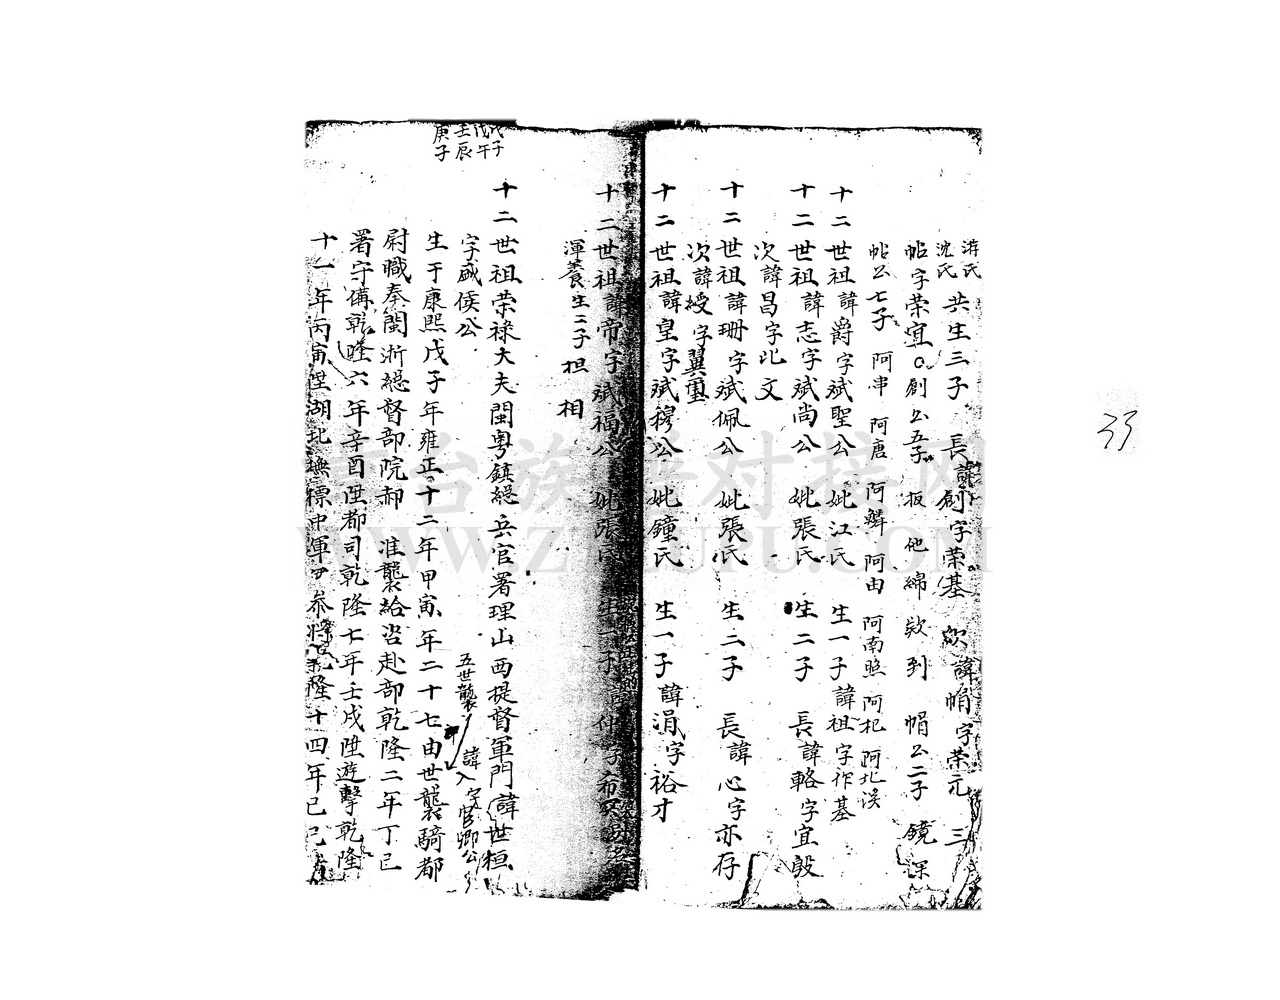 游氏
沈氏 共生三子 長諱創字荣基 次諱帩字荣元 三
帖字荣宜 創公五子 扳 他 綿 欵 到 帩公二子 鏡 深
帖公七子 阿串 阿唐 阿辮 阿由 阿南照 阿杞 阿北
十二世祖諱爵字斌聖公 妣江氏 生一子諱祖字作基
十二世祖諱志字斌尚公 妣張氏 生二子 長諱輅字宜殷
次諱昌字北文
十二世祖諱珊字斌佩公 妣張氏 生二子 長諱心字亦存
次諱綬字翼璽
十二世祖諱皇字斌穆公 妣鐘氏 生一子諱涓字裕才
十二世祖諱帝字斌福公 妣張氏 生一子諱仲字希
渾養生二子 担 相
戊子
戊午
壬辰
庚子
十二世祖荣祿大夫閩粵鎮總兵官署理山西提督軍門諱世桓
字威侯公 五世襲 諱入字官卿公
生于康熙戊子年雍正十二年甲寅年二十七由世襲騎都
尉職奉閩浙總督部院郝 准襲給咨赴部乾隆二年丁巳
署守俻乾隆六年辛酉陞都司乾隆七年壬戌陞遊擊乾隆
十一年丙寅陞湖北撫標中軍參將乾隆十四年己巳
33
臺台族譜对接网
WWW.ZPUPU.COM